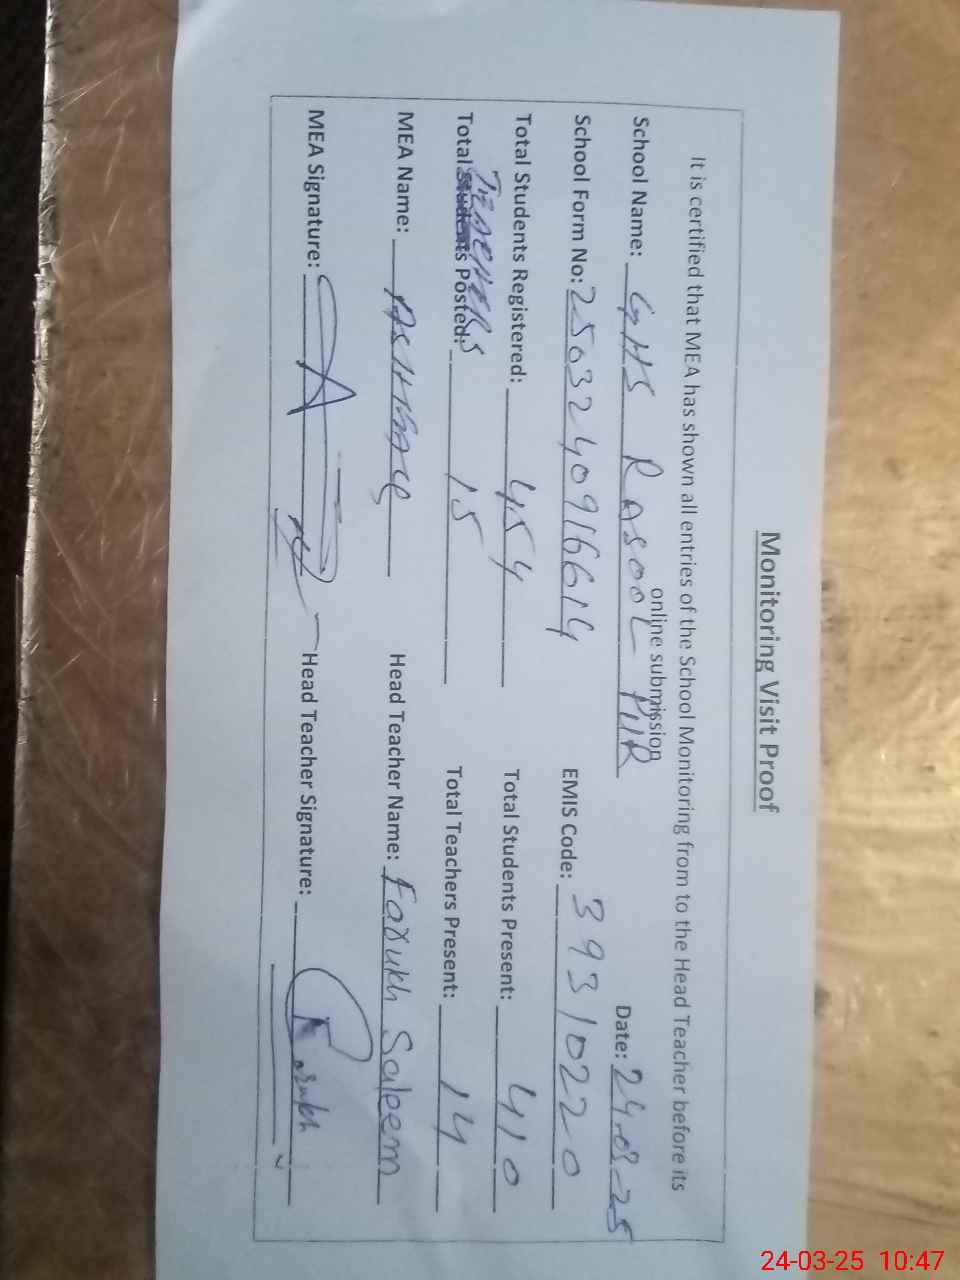 Monitoring Visit Proof
It is certified that MEA has shown all entries of the School Monitoring from to the Head Teacher before its
online submission
School Name: GHS RASOOL PUR Date: 24-03-25
School Form No: 2503240916614 EMIS Code: 39310220
Total Students Registered: 454 Total Students Present: 410
Teachers
Total Students Posted: 15 Total Teachers Present: 14
MEA Name: Head Teacher Name: Farukh Saleem
MEA Signature: Head Teacher Signature: Farukh
24-03-25 10:47